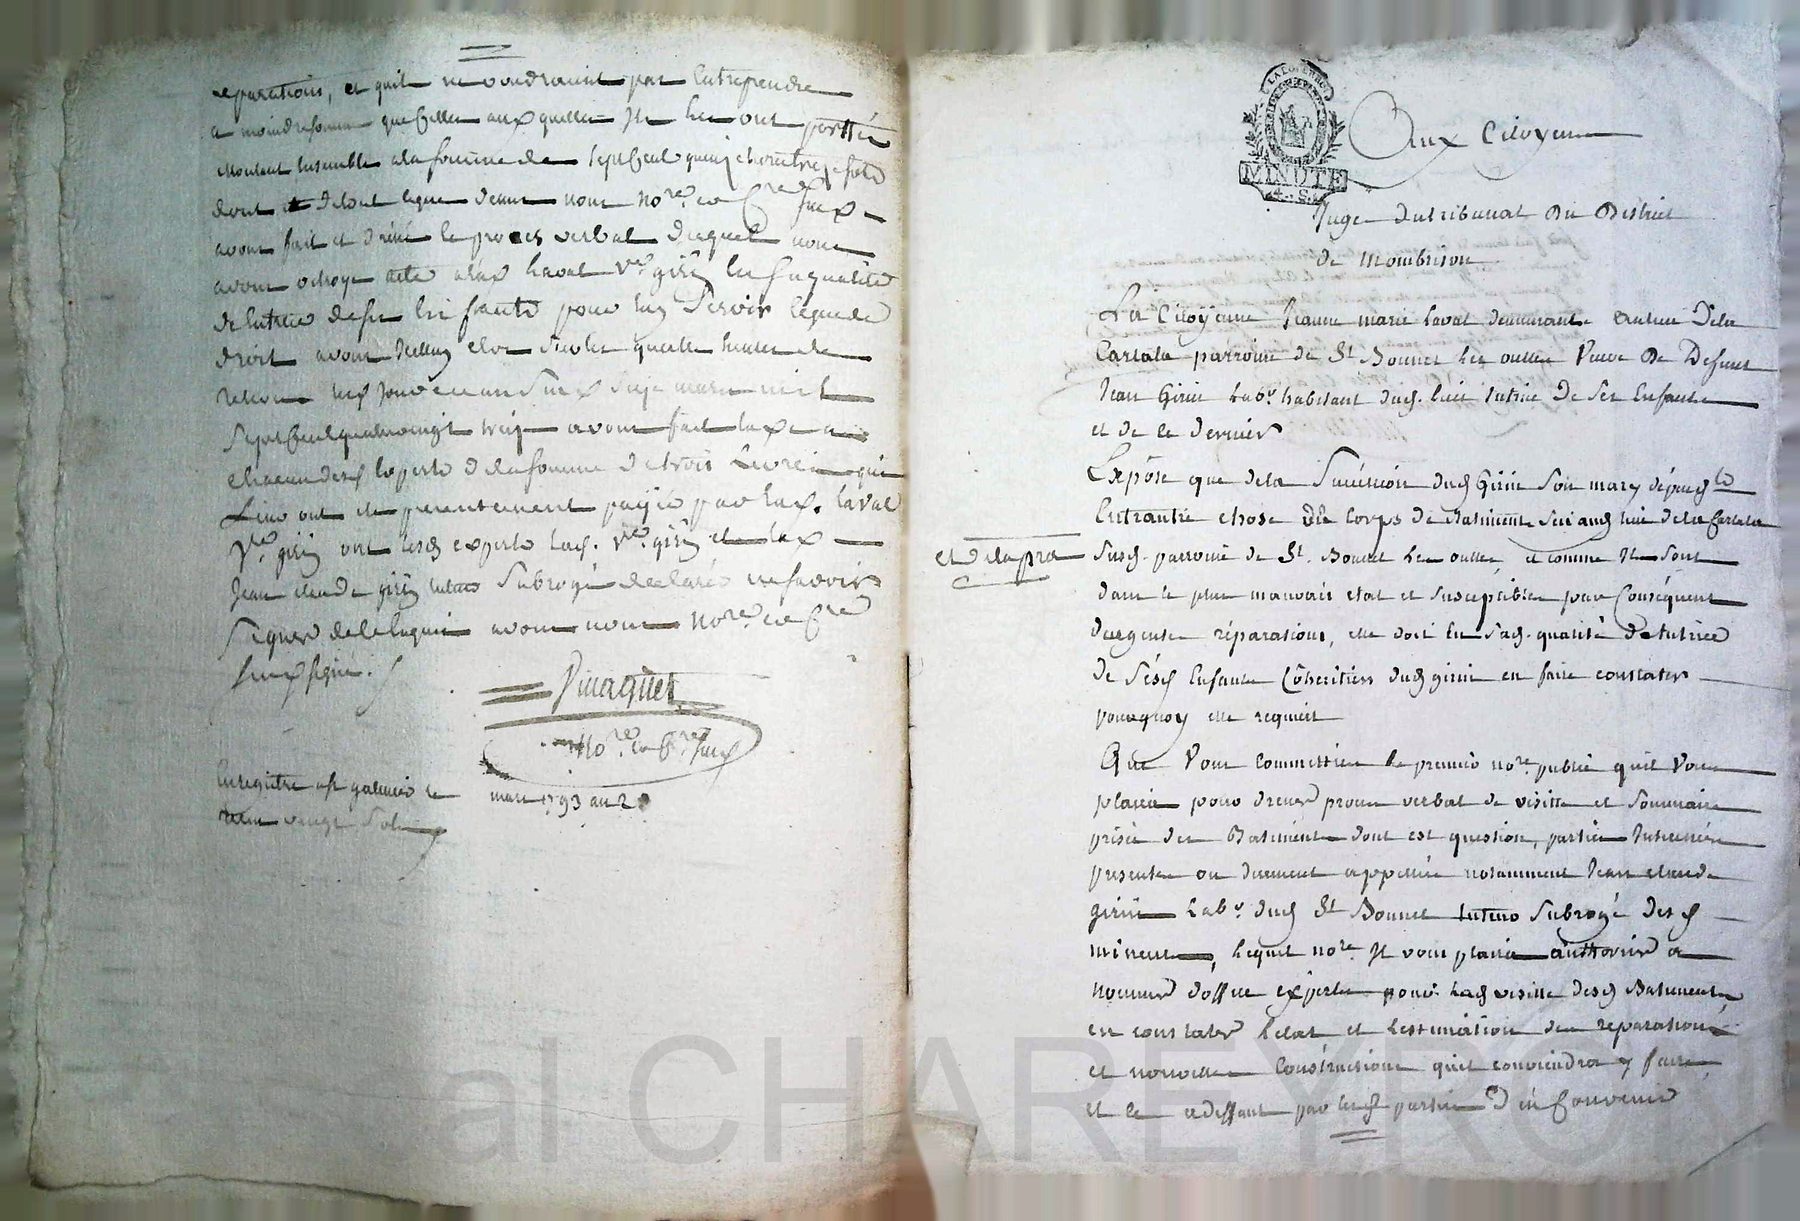 reparations, et quil ne voudraient pas Entreprendre
a moindre somme que Celles auxquelles Ils les ont portées
Montant Ensemble a la somme de sept Cent quatre
dont et detout ceque dessus nous No.re et C.re
avons fait et dréssé le proces verbal duquel nous
avons octroyé acte alad. Laval V.e girin En sa qualité
detutrice deses Enfants pour luy Servir ceque de
droit
Sept Cent quatre vingt treize avons fait taxe a
chacun desd. Experts dela somme de trois Livres
Leur ont ete presentement payée par lad. Laval
V.e girin ont lesd. experts lad. V.e girin et led.
Jean claude girin tuteur Subrogé declaré ne savoir
Signer de ce Enquis avons nous No.re et C.re
Souss. signé.
No.re et C.re Souss.
Enregistré a St galmier le mars 1793 an 2
vingt Sols
LA LOI ET LE ROI
MINUTE
4. S.
Aux Citoyens
Juges dutribunal Du District
de Montbrison
La Citoyenne Jeanne marie Laval demeurant au lieu Dela
Cartala parroisse de St. Bonnet Les oulles Veuve De Defunt
Jean Girin Lab.r habitant dud. lieu tutrice De Ses Enfants
et de ce dernier
Expose que dela Succession dud. Girin Son mary dépend
Entr'autre chose des Corps de Batiments Scis aud. lieu dela Cartala
et delapre
Susd. parroisse de St. Bonnet Les oulles, et comme Ils Sont
dans le plus mauvais etat et susceptibles par Conséquent
durgentes réparations, elle doit En Sad. qualité de tutrice
de Sesd. Enfants Cohéritiers dud. girin en faire constater
pourquoy elle requiert
Que Vous Commettiez le premier no.re public quil Vous
plaira pour dresser proces verbal de visitte et Sommaire
prisée des Batiments dont est question, parties Interessées
presentes ou duement appellées notamment Jean claude
girin Lab.r dud. St. Bonnet tuteur Subrogé desd.
mineurs, Lequel no.re Il vous plaira authoriser a
nommer doffice experts pour lad. visitte desd. Batiments
en constater Letat et Lestimation des reparations
et nouvelles Constructions quil conviendra y faire
et a cedeffaut par lesd. parties d'en Convenir
al CHAREYRON